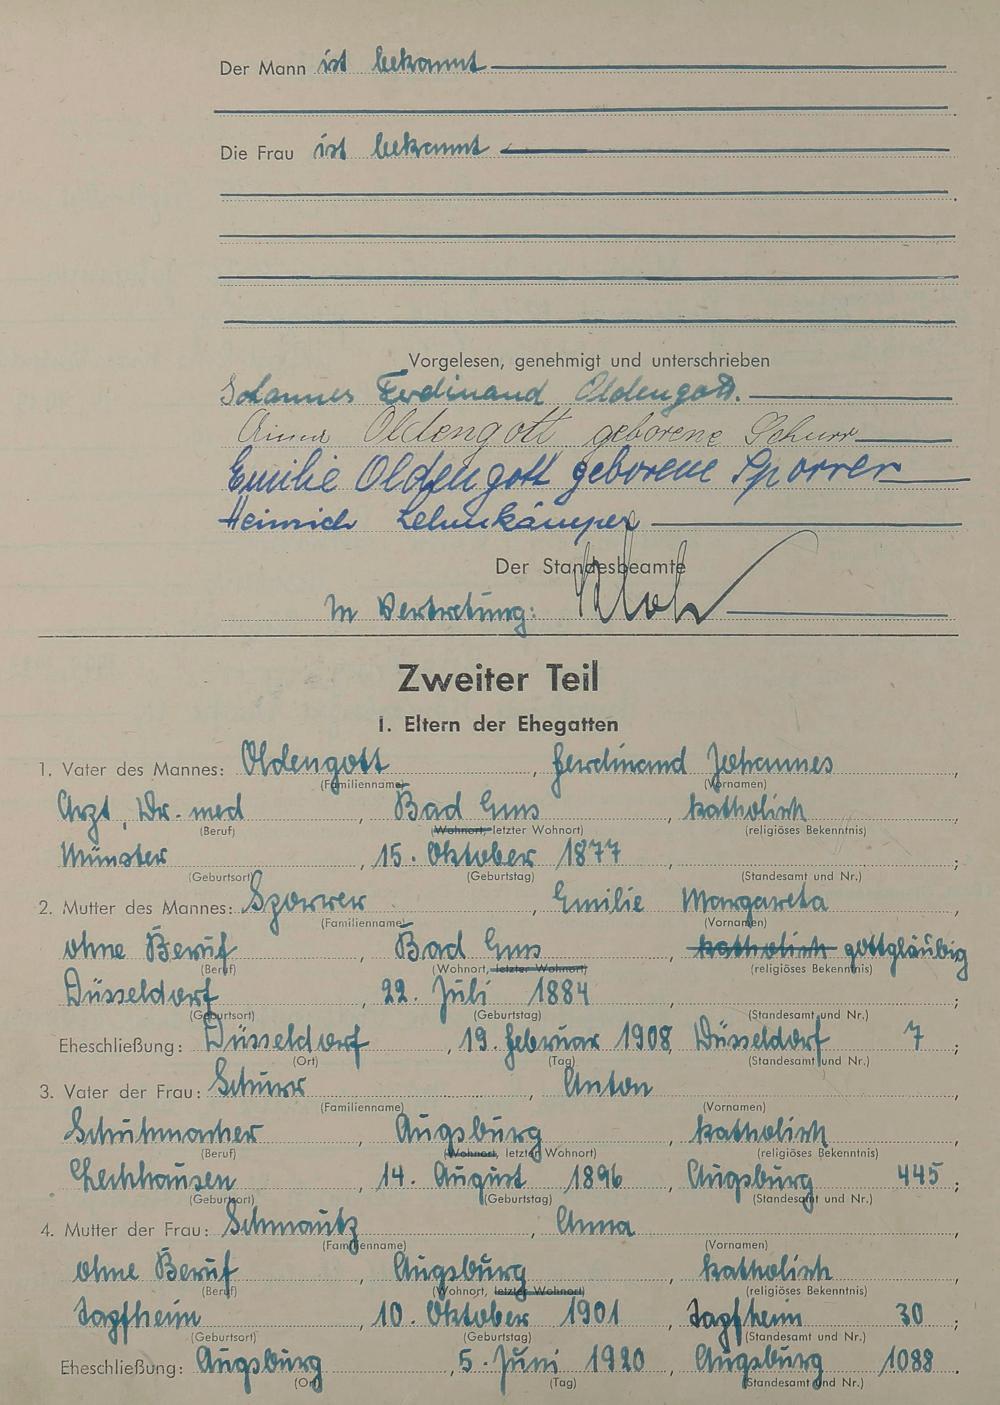 Der Mann ist bekannt
Die Frau ist bekannt
Vorgelesen, genehmigt und unterschrieben
Johannes Ferdinand Oldengott.
Anna Oldengott geborene Schurr
Emilie Oldengott geborene Sporrer
Heinrich Lehmkämper
Der Standesbeamte
In Vertretung:
Zweiter Teil
I. Eltern der Ehegatten
1. Vater des Mannes: Oldengott, Ferdinand Johannes,
(Familienname) (Vornamen)
Arzt, Dr. med, Bad Ems, katholisch
(Beruf) (Wohnort, letzter Wohnort) (religiöses Bekenntnis)
Münster, 15. Oktober 1877, ;
(Geburtsort) (Geburtstag) (Standesamt und Nr.)
2. Mutter des Mannes: Sporrer, Emilie Margareta,
(Familienname) (Vornamen)
ohne Beruf, Bad Ems, katholisch gottgläubig
(Beruf) (Wohnort, letzter Wohnort) (religiöses Bekenntnis)
Düsseldorf, 22. Juli 1884, ;
(Geburtsort) (Geburtstag) (Standesamt und Nr.)
Eheschließung: Düsseldorf, 19. Februar 1908, Düsseldorf 7;
(Ort) (Tag) (Standesamt und Nr.)
3. Vater der Frau: Schurr, Anton,
(Familienname) (Vornamen)
Schuhmacher, Augsburg, katholisch,
(Beruf) (Wohnort, letzter Wohnort) (religiöses Bekenntnis)
Lechhausen, 14. August 1896, Augsburg 445;
(Geburtsort) (Geburtstag) (Standesamt und Nr.)
4. Mutter der Frau: Schmautz, Anna,
(Familienname) (Vornamen)
ohne Beruf, Augsburg, katholisch,
(Beruf) (Wohnort, letzter Wohnort) (religiöses Bekenntnis)
Tapfheim, 10. Oktober 1901, Tapfheim 30;
(Geburtsort) (Geburtstag) (Standesamt und Nr.)
Eheschließung: Augsburg, 5. Juni 1920, Augsburg 1088.
(Ort) (Tag) (Standesamt und Nr.)